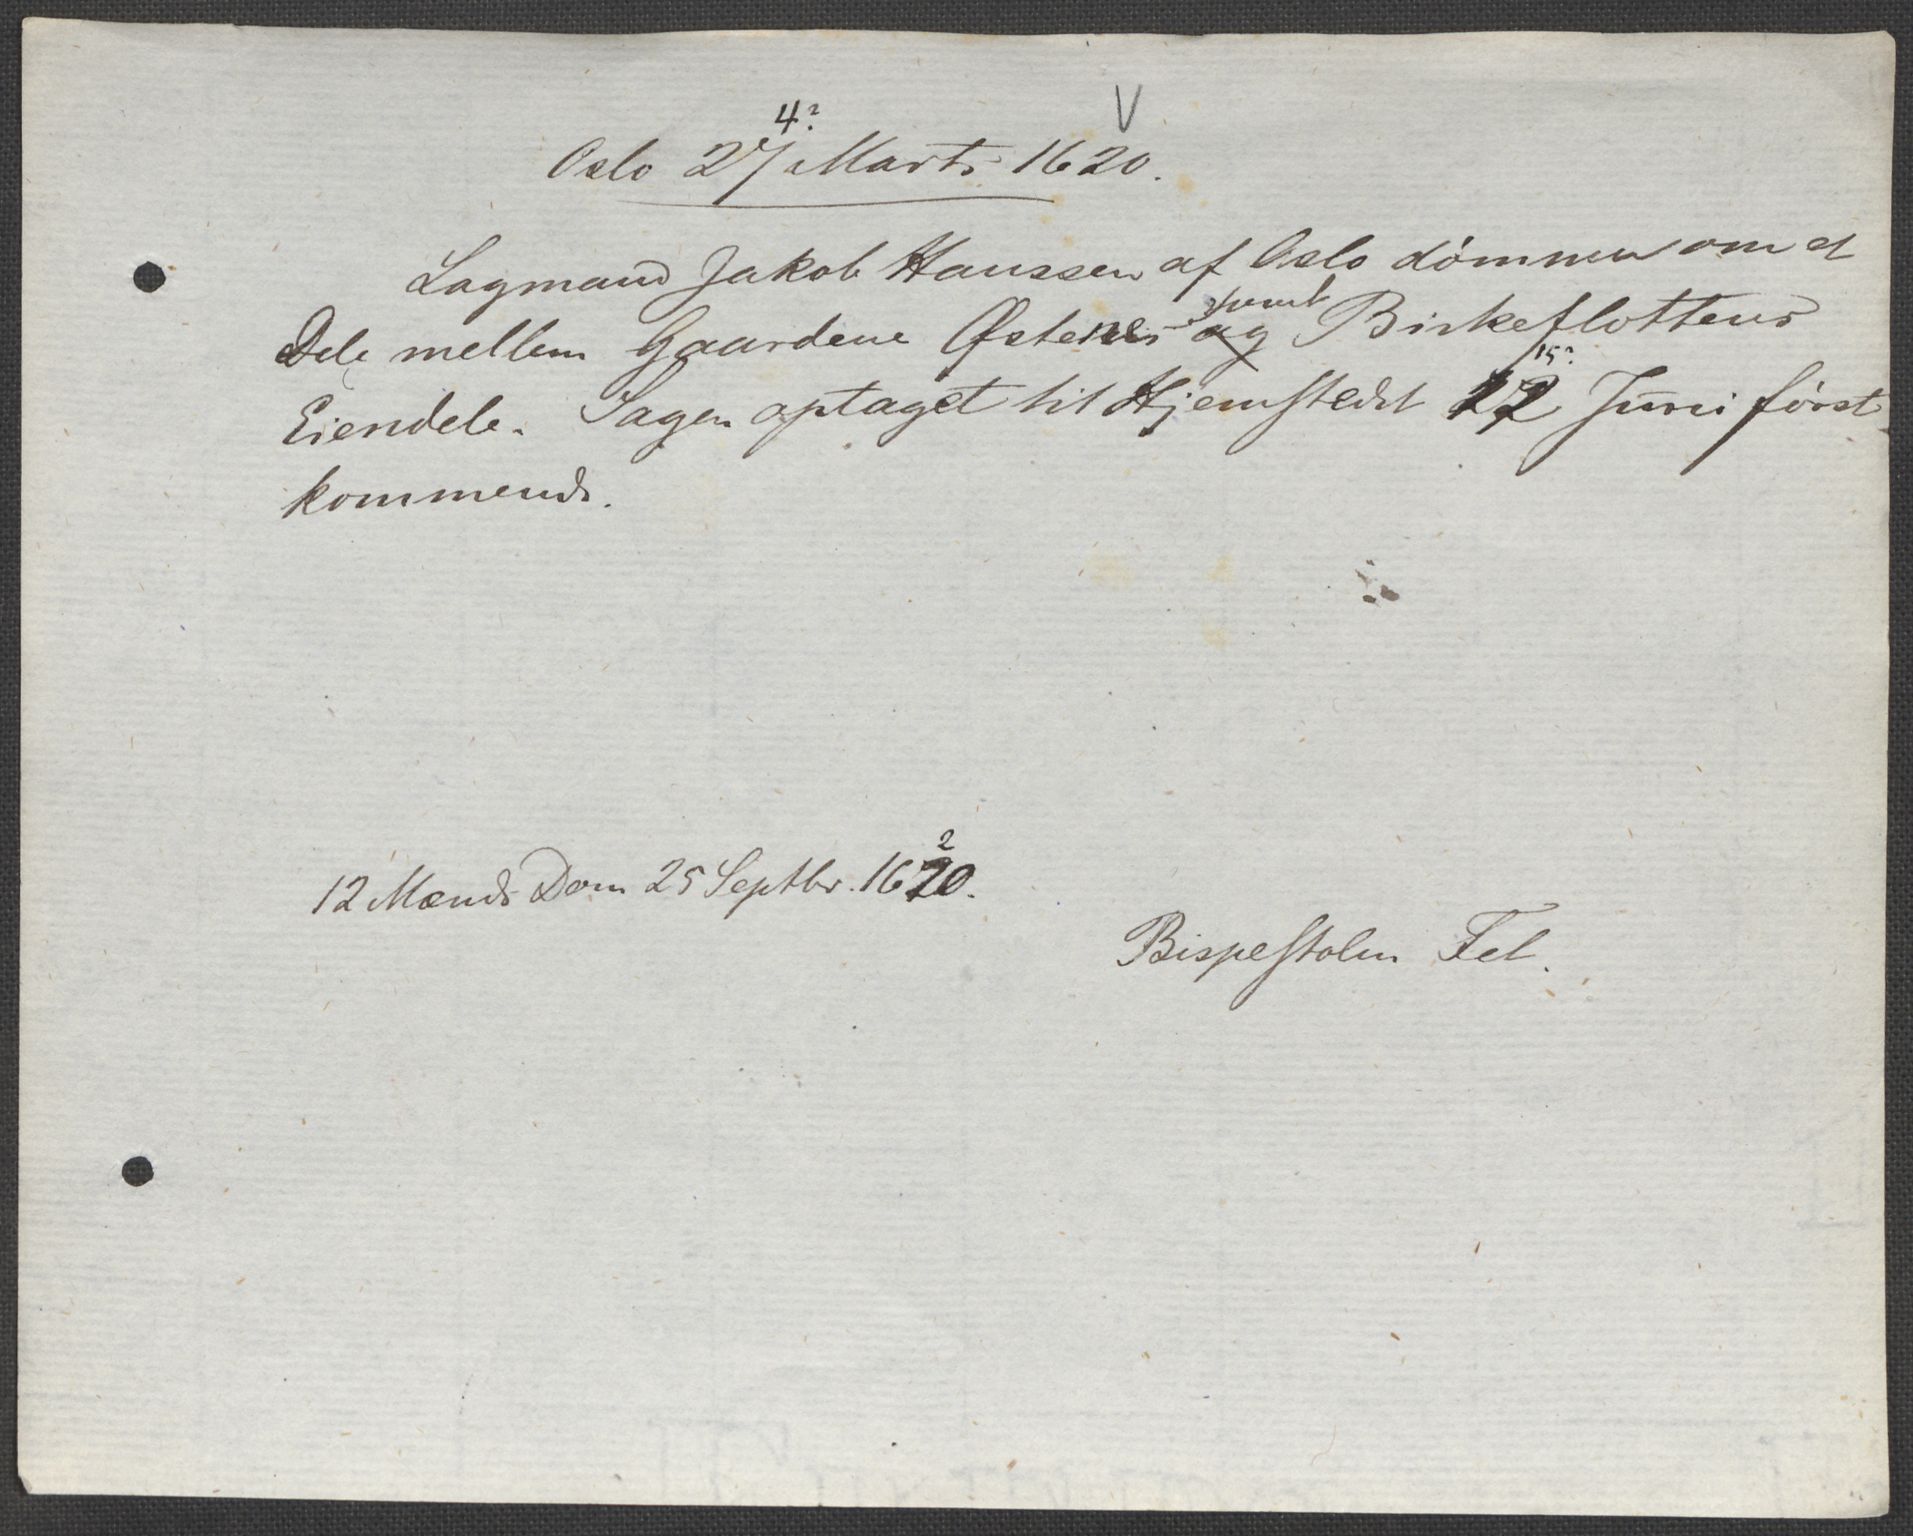 V
4?
Oslo 27 Marts 1620.
Lagmand Jakob Hanssen af Oslo dömmer om et
samt
Dele mellem Gaardene Østenes og Birkeflottens
15?
Eiendele. Sagen optaget til Hjemstedet 12 Juni först
kommende.
2
12 Mænds Dom 25 Septbr. 1620.
Bispestolen Tel.